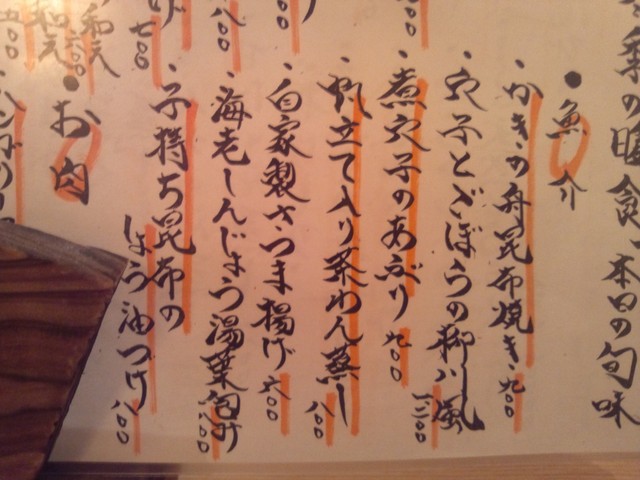 本日の旬味
●魚介
・かきの舟昆布焼き 九〇〇
・穴子とごぼうの柳川風 一二〇〇
・煮穴子のあぶり 九〇〇
・帆立て入り茶わん蒸し 八〇〇
・自家製さつま揚げ 六〇〇
・海老しんじょう湯葉包み 八〇〇
・子持ち昆布の
しょう油づけ 八〇〇
●お肉